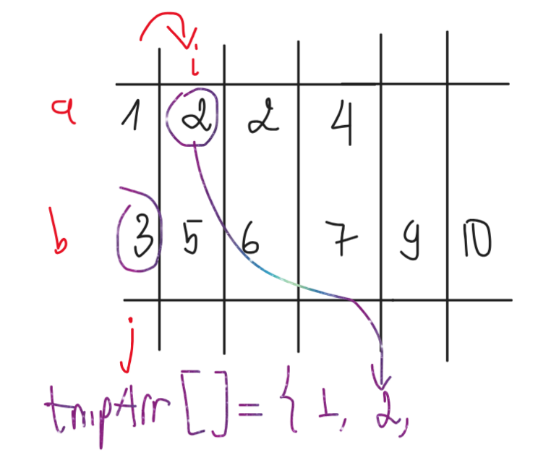 i
a 1 2 2 4
b 3 5 6 7 9 10
j
tmpArr [] = { 1, 2,